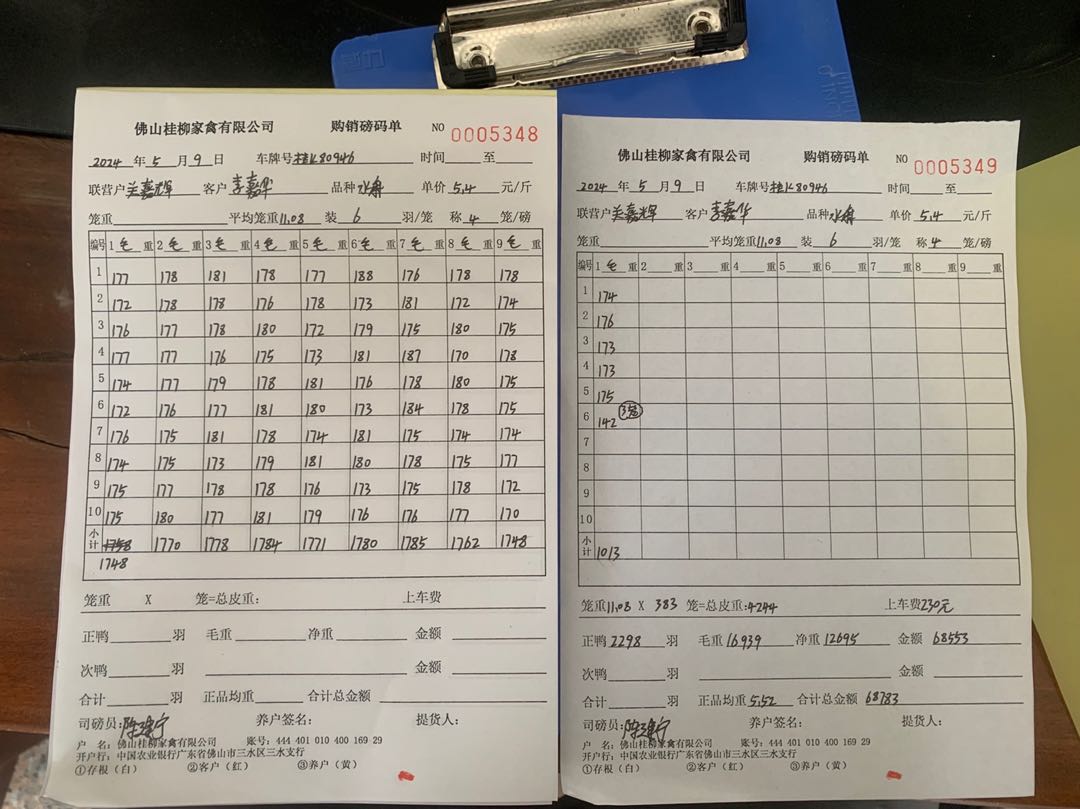 佛山桂柳家禽有限公司 购销磅码单 NO 0005348
2024 年 5 月 9 日 车牌号 桂K80946 时间 至
联营户 关嘉辉 客户 李嘉华 品种 水鸭 单价 5.4 元/斤
笼重 平均笼重 11.08 装 6 羽/笼 称 4 笼/磅
编号 1 毛 重 2 毛 重 3 毛 重 4 毛 重 5 毛 重 6 毛 重 7 毛 重 8 毛 重 9 毛 重
1 177 178 181 178 177 188 176 178 178
2 172 178 178 176 178 173 181 172 174
3 176 177 178 180 172 179 175 180 175
4 177 177 176 175 173 181 187 170 178
5 174 177 179 178 181 176 178 180 175
6 172 176 177 181 180 173 184 178 175
7 176 175 181 178 174 181 175 174 174
8 174 175 173 179 181 180 178 175 177
9 175 177 178 178 176 173 175 178 172
10 175 180 177 181 179 176 176 177 170
小计 1758 1770 1778 1784 1771 1780 1785 1762 1748
1748
笼重 X 笼=总皮重: 上车费
正鸭 羽 毛重 净重 金额
次鸭 羽 金额
合计 羽 正品均重 合计总金额
司磅员: 养户签名: 提货人:
户 名: 佛山桂柳家禽有限公司 账号: 444 401 010 400 169 29
开户行: 中国农业银行广东省佛山市三水区三水支行
①存根(白) ②客户(红) ③养户(黄)
佛山桂柳家禽有限公司 购销磅码单 NO 0005349
2024 年 5 月 9 日 车牌号 桂K80946 时间 至
联营户 关嘉辉 客户 李嘉华 品种 水鸭 单价 5.4 元/斤
笼重 平均笼重 11.08 装 6 羽/笼 称 4 笼/磅
编号 1 毛 重 2 重 3 重 4 重 5 重 6 重 7 重 8 重 9 重
1 174
2 176
3 173
4 173
5 175
6 142 3笼
7
8
9
10
小计 1013
笼重 11.08 X 383 笼=总皮重: 4244 上车费 230元
正鸭 2298 羽 毛重 16939 净重 12695 金额 68553
次鸭 羽 金额
合计 羽 正品均重 5.52 合计总金额 68783
司磅员: 养户签名: 提货人:
户 名: 佛山桂柳家禽有限公司 账号: 444 401 010 400 169 29
开户行: 中国农业银行广东省佛山市三水区三水支行
①存根(白) ②客户(红) ③养户(黄)